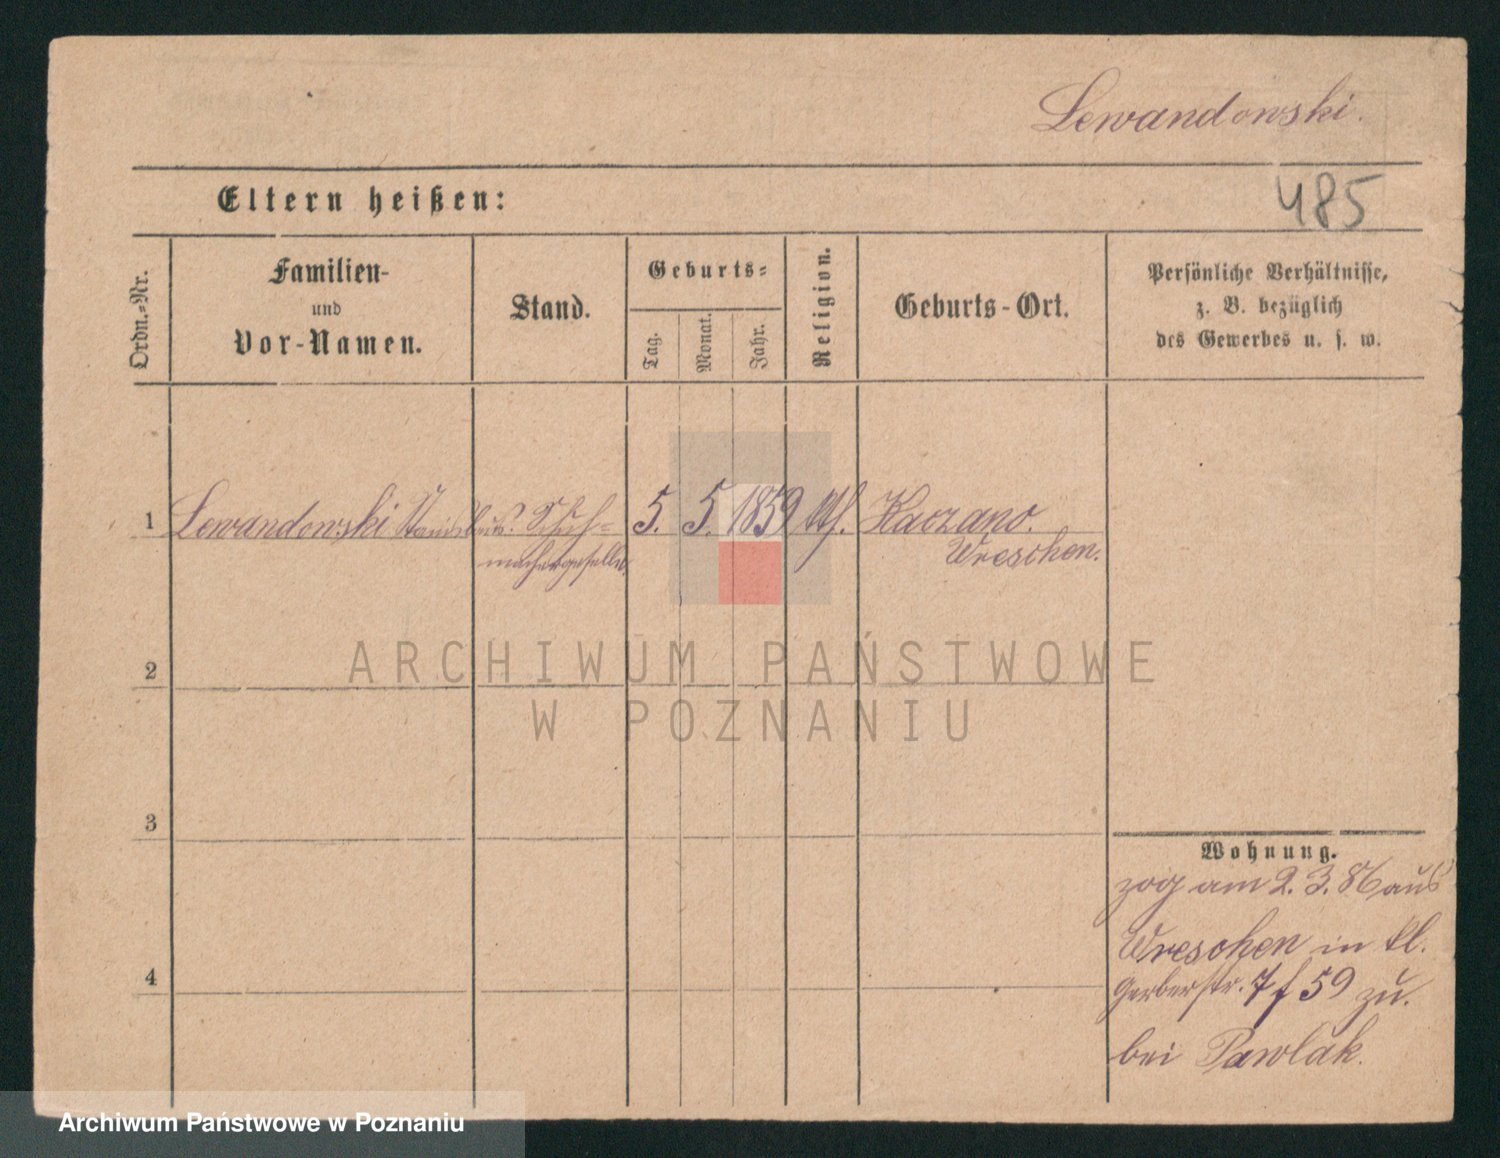 Lewandowski.
Eltern heißen:
485
Ordn.-Nr.
Familien-
und
Vor-Namen.
Stand.
Geburts-
Tag.
Monat.
Jahr.
Religion.
Geburts-Ort.
Persönliche Verhältnisse,
z. B. bezüglich
des Gewerbes u. s. w.
1 Lewandowski Stanislaus. Schuh- 5. 5. 1859 kth. Kaczano.
machergeselle. Wreschen.
ARCHIWUM PAŃSTWOWE
W POZNANIU
2
3
4
Wohnung.
zog am 2. 3. 86 aus
Wreschen in kl.
Gerberstr. 7 f 59 zu.
bei Pawlak.
Archiwum Państwowe w Poznaniu